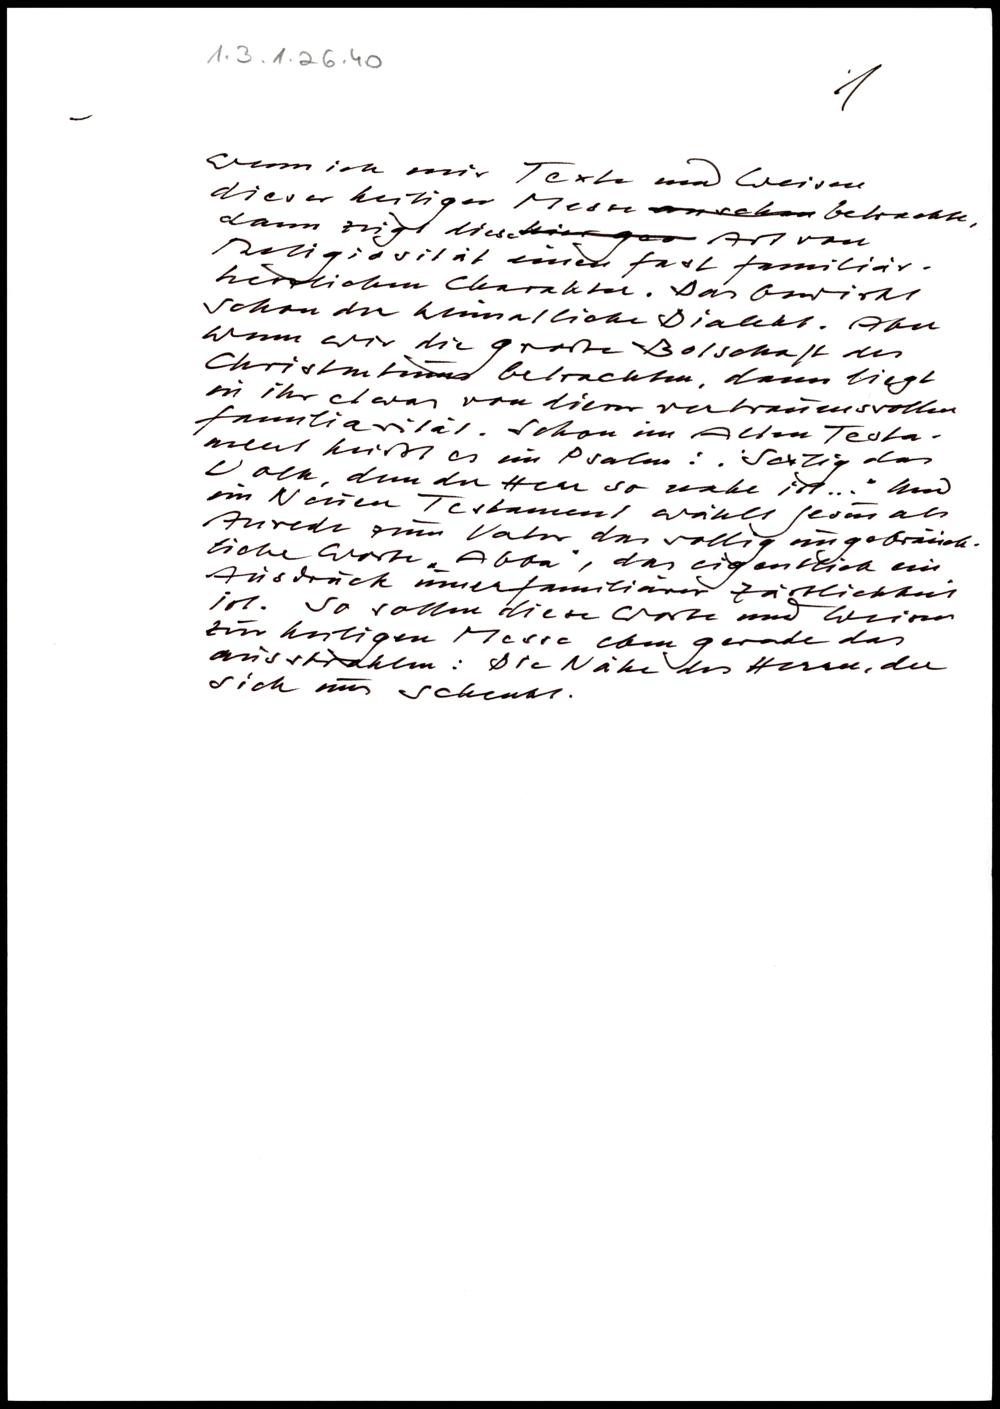 1.3.1.26.40
1
Wenn ich mir Texte und Weisen
dieser heiligen Messe anschau betrachte,
dann zeigt diese Art von
Religiosität einen fast familiär-
herzlichen Charakter. Das bewirkt
schon der heimatliche Dialekt. Aber
wenn wir die große Botschaft des
Christentums betrachten, dann liegt
in ihr etwas von dieser vertrauensvollen
Familiarität. Schon im Alten Testa-
ment heißt es im Psalm: "Selig das
Volk, dem der Herr so nahe ist..." Und
im Neuen Testament wählt Jesus als
Anrede zum Vater das völlig ungebräuch-
liche Worte „Abba", das eigentlich ein
Ausdruck inner familiärer Zärtlichkeit
ist. So sollen diese Worte und Weisen
zur heiligen Messe eben gerade das
ausstrahlen: Die Nähe des Herrn, der
sich uns schenkt.